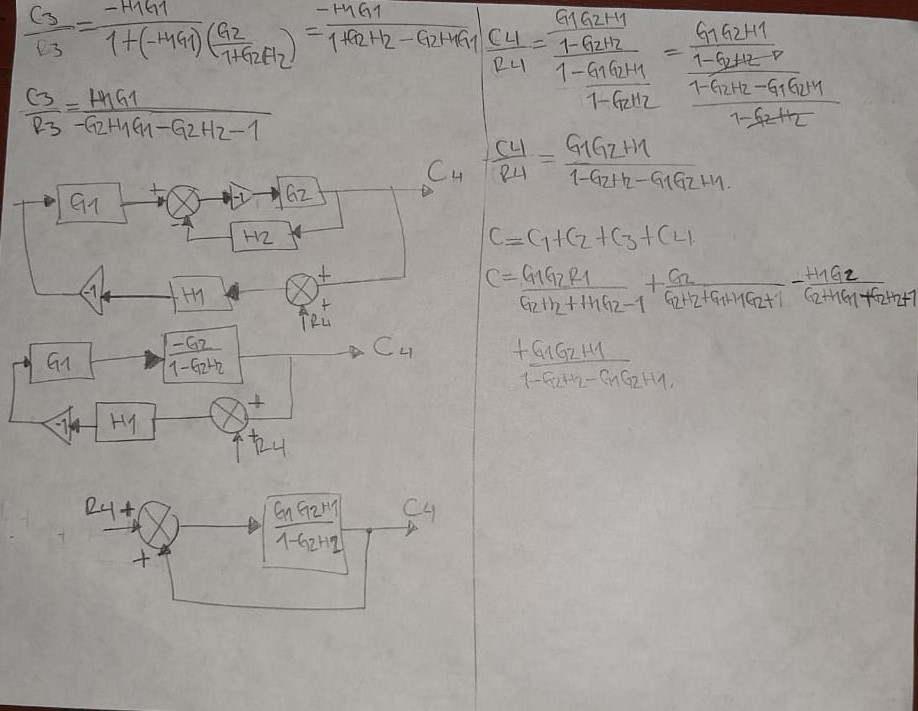 C3/R3 = -H1G1/1+(-H1G1)(G2/1+G2H2) = -H1G1/1+G2H2-G2H1G1
C3/R3 = H1G1/-G2H1G1-G2H2-1
C4
G1 + -1 G2
- H2
-1 H1 +
+
R4
G1 -G2/1-G2H2 C4
-1 H1 +
+R4
R4 + G1G2H1/1-G2H2 C4
+
C4/R4 = G1G2H1/1-G2H2/1-G1G2H1/1-G2H2 = G1G2H1/1-G2H2/1-G2H2-G1G2H1/1-G2H2
C4/R4 = G1G2H1/1-G2H2-G1G2H1.
C=C1+C2+C3+C4.
C=G1G2R1/G2H2+H1G2-1 + G2/G2H2+G1H1G2+1 - H1G2/G2H1G1+G2H2+1
+G1G2H1/1-G2H2-G1G2H1.